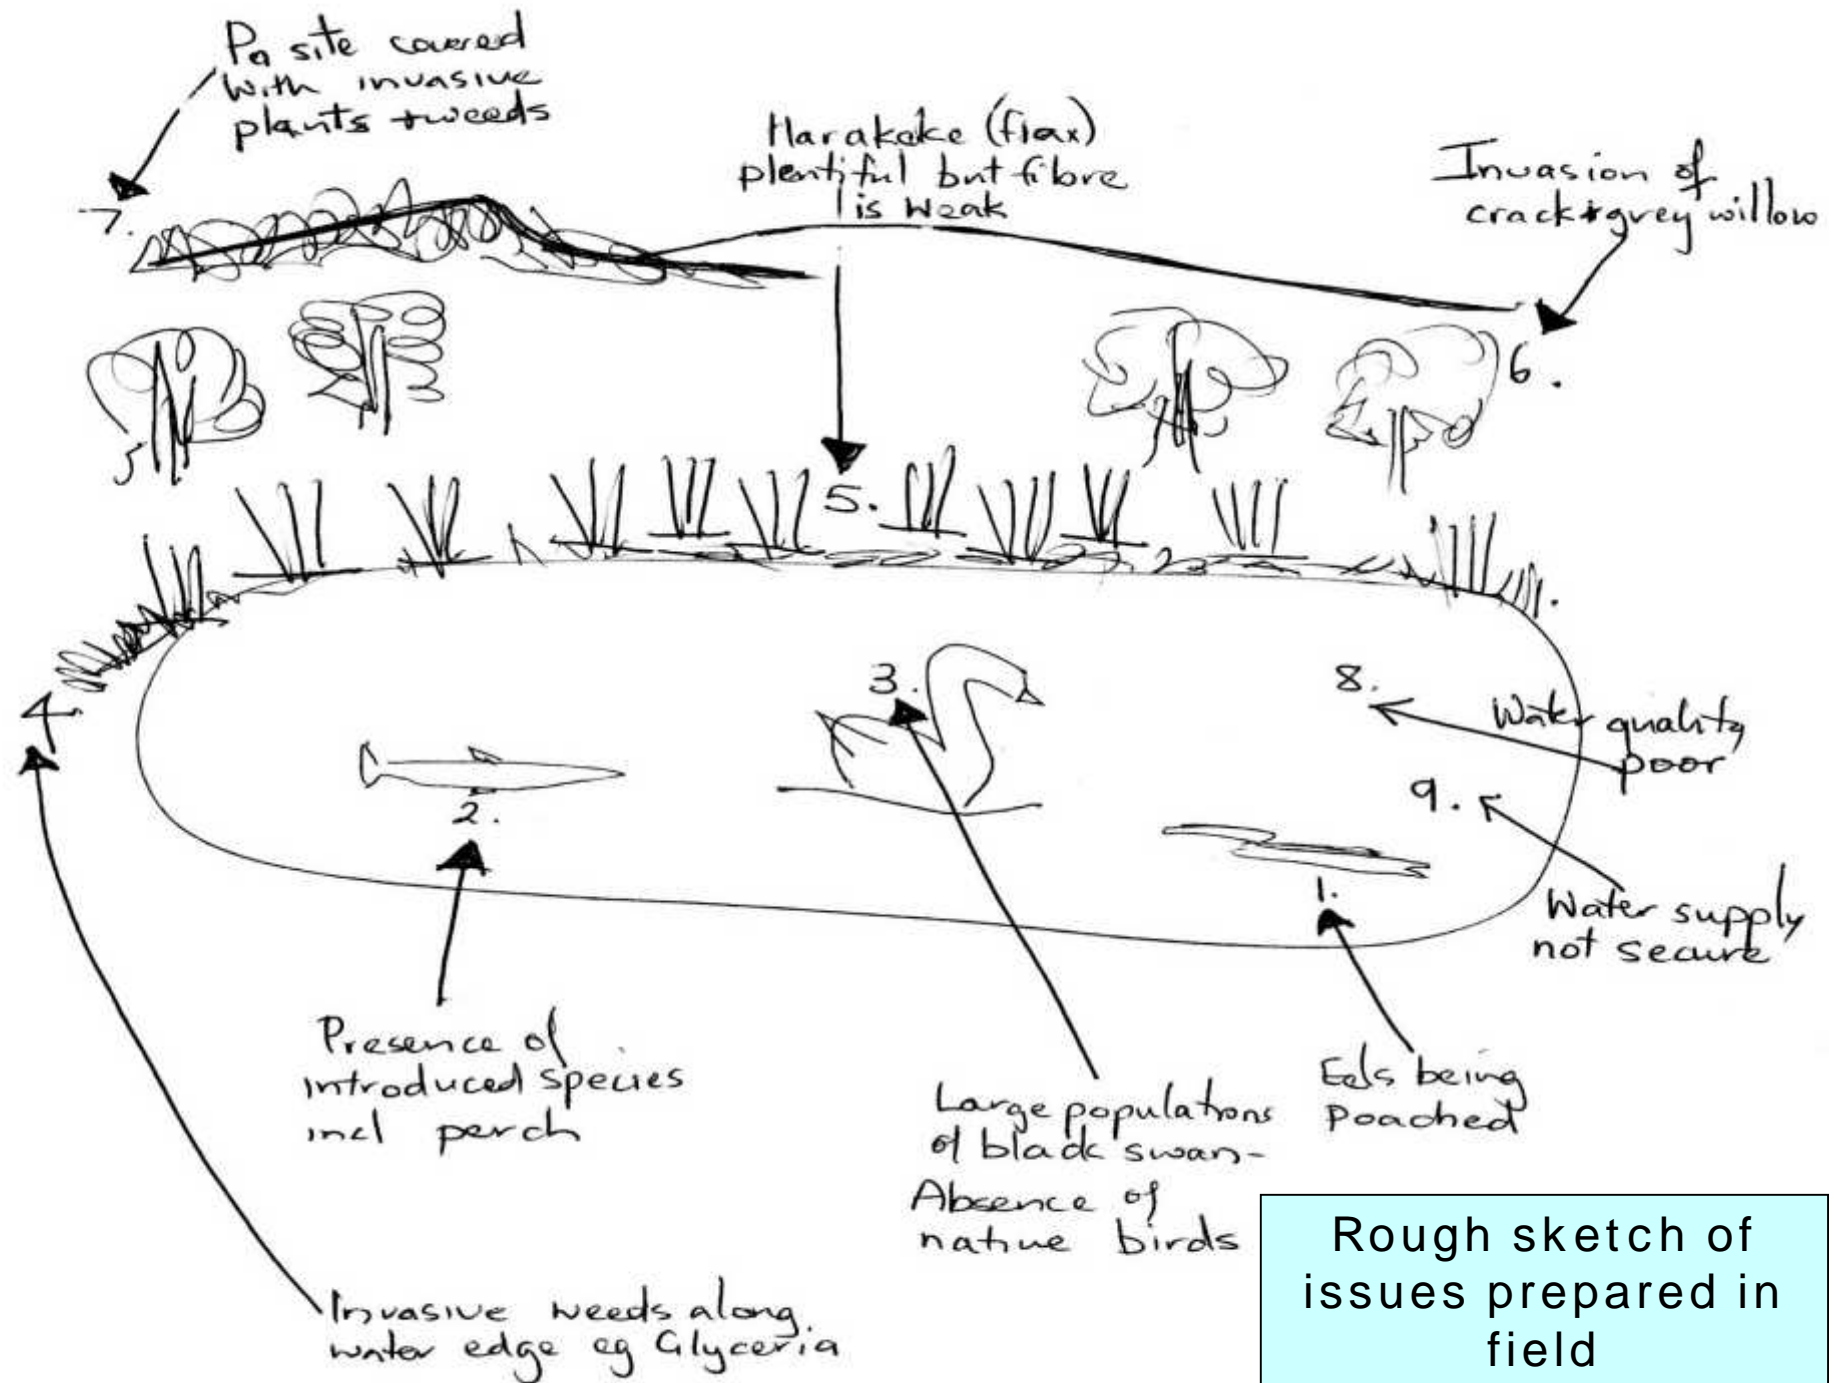 Pa site covered
with invasive
plants + weeds
Harakeke (flax)
plentiful but fibre
is weak
Invasion of
crack + grey willow
7.
6.
5.
4
3.
8.
Water quality
poor
2.
9.
1.
Water supply
not secure
Presence of
introduced species
incl perch
Large populations
of black swan-
Absence of
native birds
Eels being
poached
Invasive weeds along
water edge eg Glyceria
Rough sketch of
issues prepared in
field